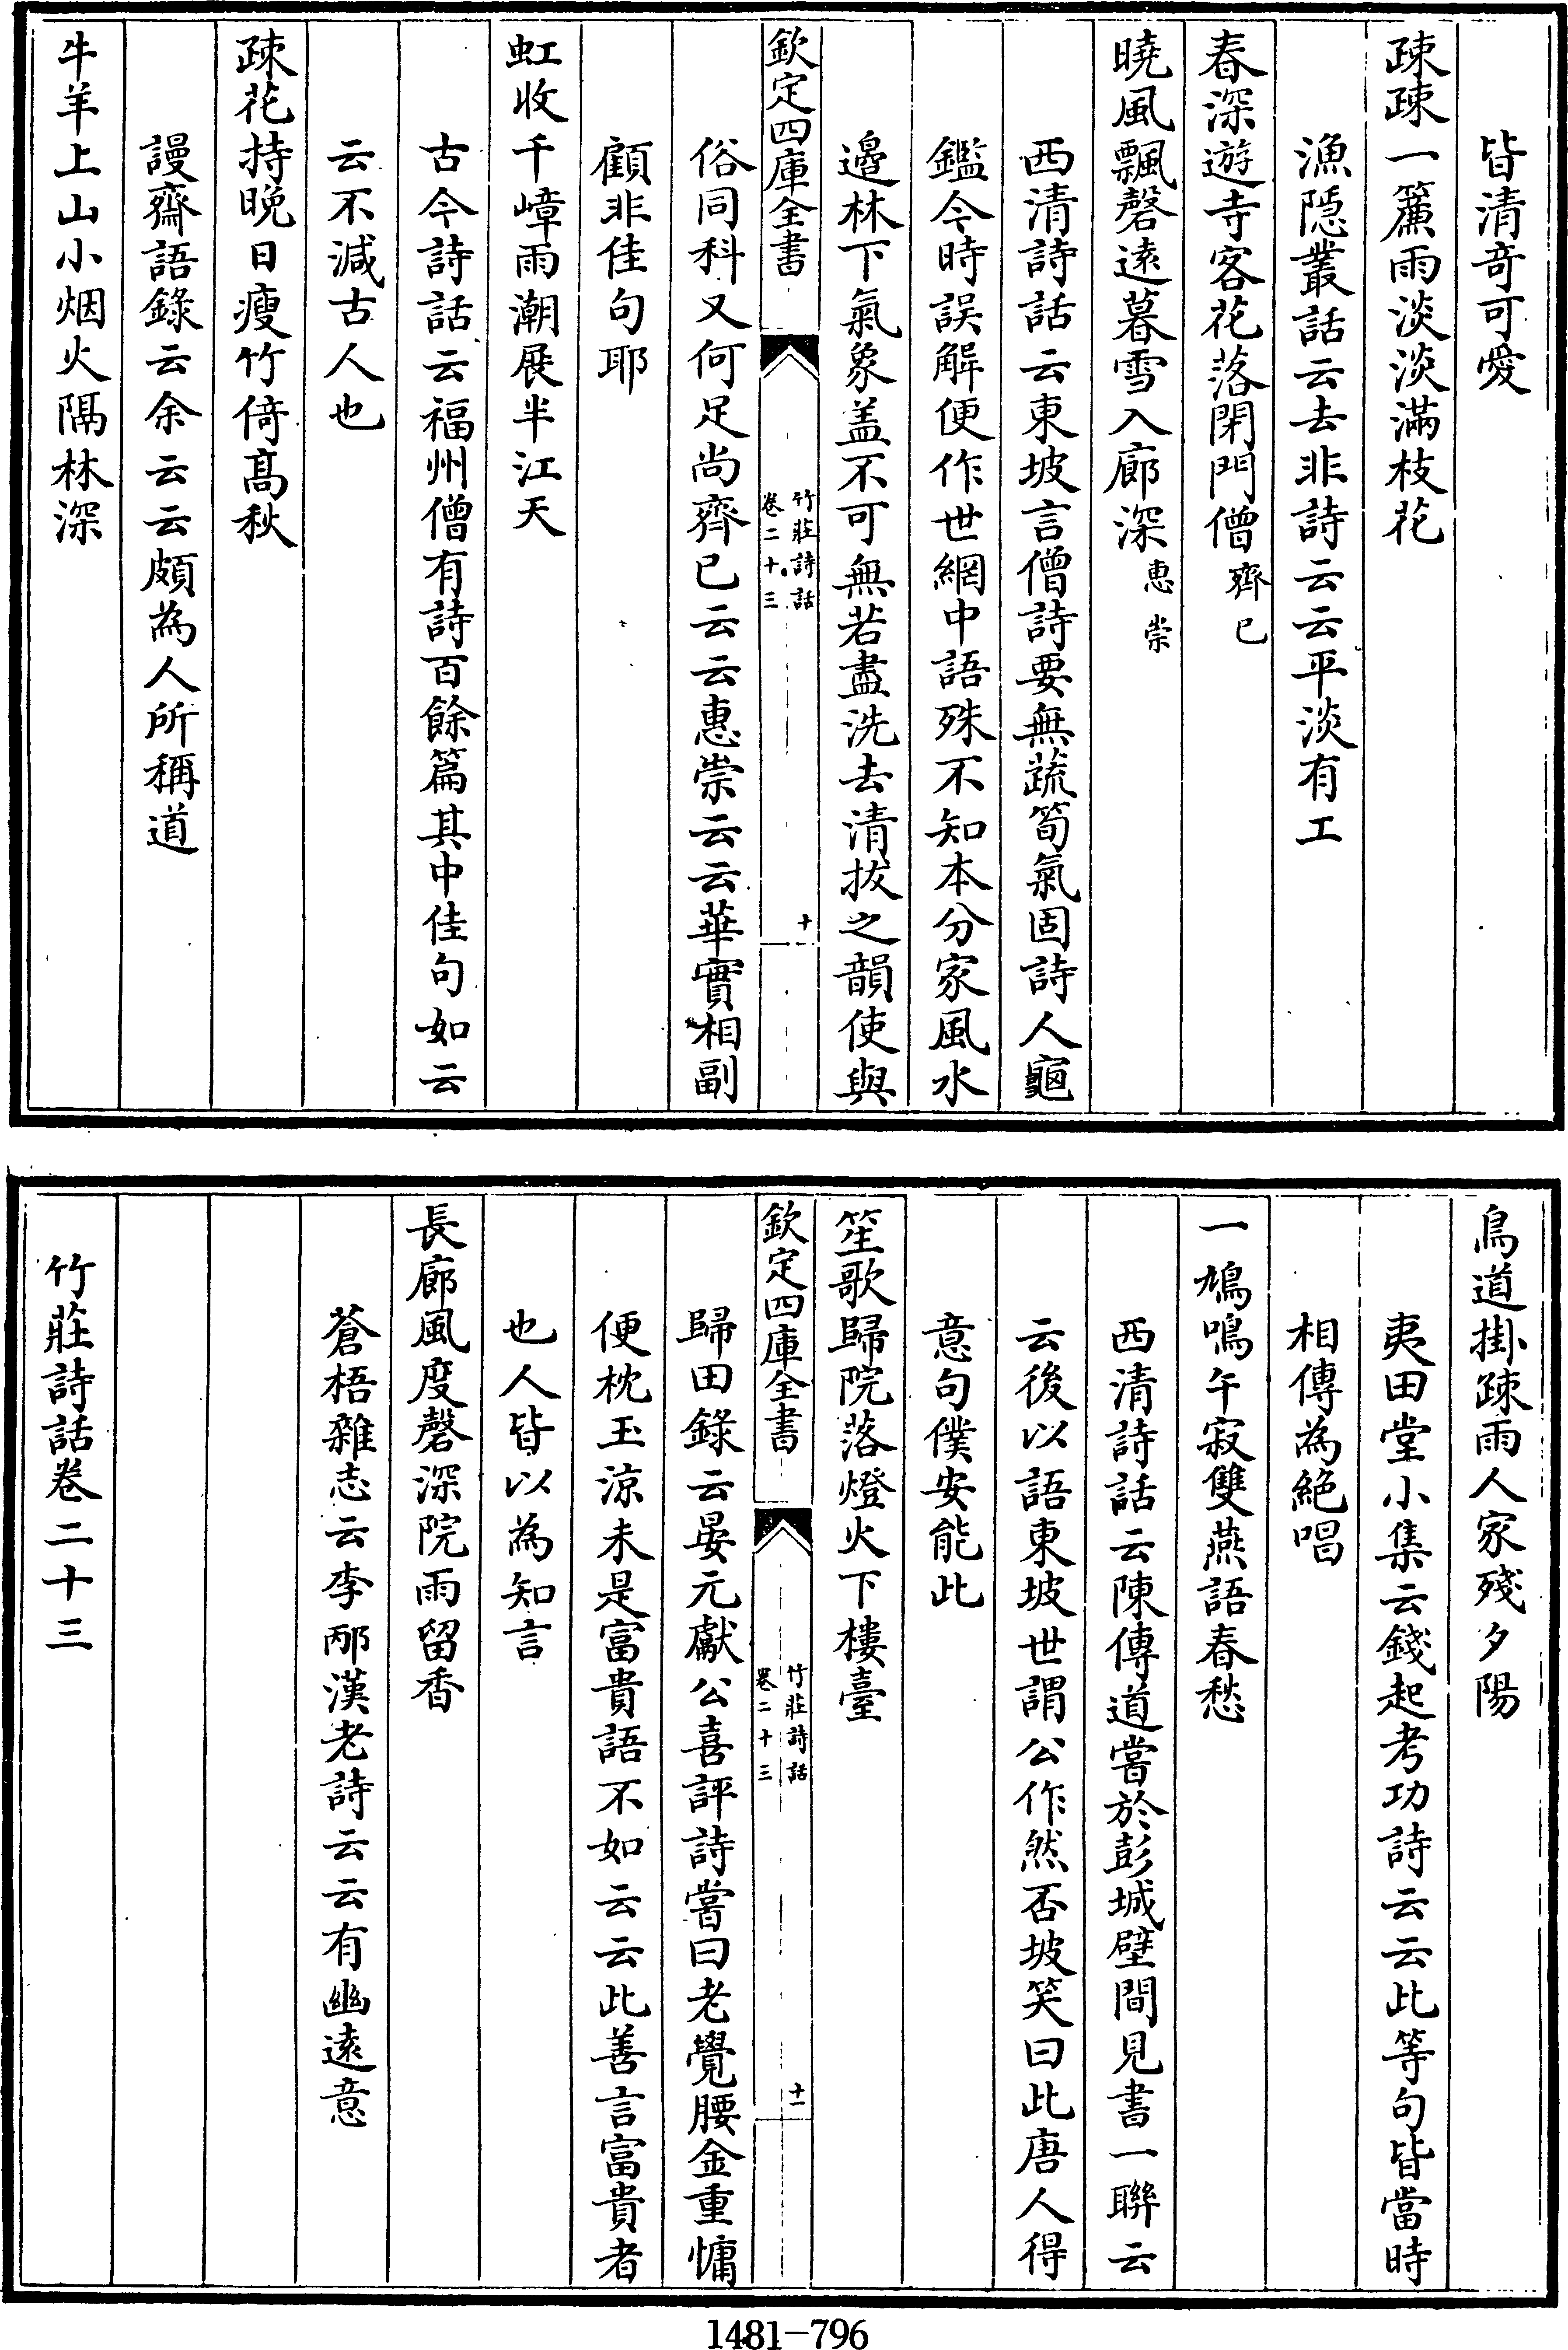 皆清奇可愛
疎疎一簾雨淡淡滿枝花
漁隱叢話云去非詩云云平淡有工
春深遊寺客花落閉門僧齊已
曉風飄磬遠暮雪入廊深惠崇
西清詩話云東坡言僧詩要無蔬筍氣固詩人龜
鑑今時誤解便作世網中語殊不知本分家風水
邉林下氣象盖不可無若盡洗去清拔之韻使與
欽定四庫全書
竹莊詩話
卷二十三
十
俗同科又何足尚齊已云云惠崇云云華實相副
顧非佳句耶
虹收千嶂雨潮展半江天
古今詩話云福州僧有詩百餘篇其中佳句如云
云不減古人也
疎花持晚日瘦竹倚髙秋
謾齋語錄云余云云頗為人所稱道
牛羊上山小烟火隔林深
鳥道掛疎雨人家殘夕陽
夷田堂小集云錢起考功詩云云此等句皆當時
相傳為絶唱
一鳩鳴午寂雙燕語春愁
西清詩話云陳傳道嘗於彭城壁間見書一聯云
云後以語東坡世謂公作然否坡笑曰此唐人得
意句僕安能此
笙歌歸院落燈火下樓臺
欽定四庫全書
竹莊詩話
卷二十三
十一
歸田錄云晏元獻公喜評詩嘗曰老覺腰金重慵
便枕玉涼未是富貴語不如云云此善言富貴者
也人皆以為知言
長廊風度磬深院雨留香
蒼梧雜志云李邴漢老詩云云有幽遠意
竹莊詩話卷二十三
1481-796